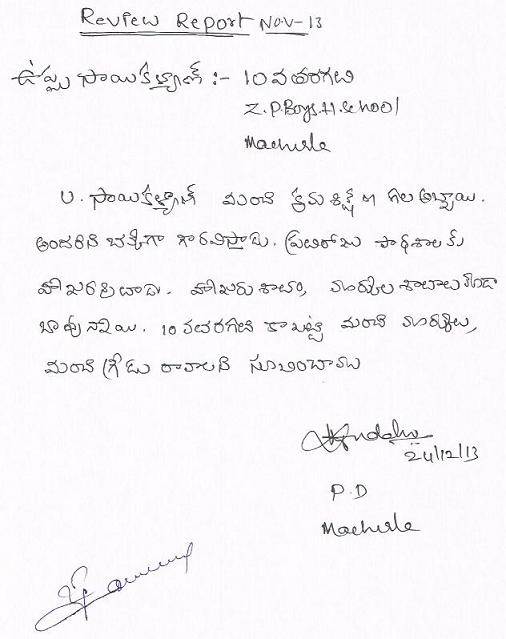 Review Report Nov-13
ఉప్పు సాయికళ్యాణ్ :- 10వ తరగతి
Z.P.Boys.H.School
Macherla
U. సాయికళ్యాణ్ మంచి క్రమశిక్షణ గల అబ్బాయి.
అందరిని భక్తిగా గౌరవిస్తాడు. ప్రతిరోజు పాఠశాలకు
హాజరవుతాడు. హాజరుశాతం, మార్కుల శాతాలు కూడా
బావున్నవి. 10వ తరగతి కాబట్టి మంచి మార్కులు,
మంచి గ్రేడు రావాలని సూచించాము
24/12/13
P.D
Macherla